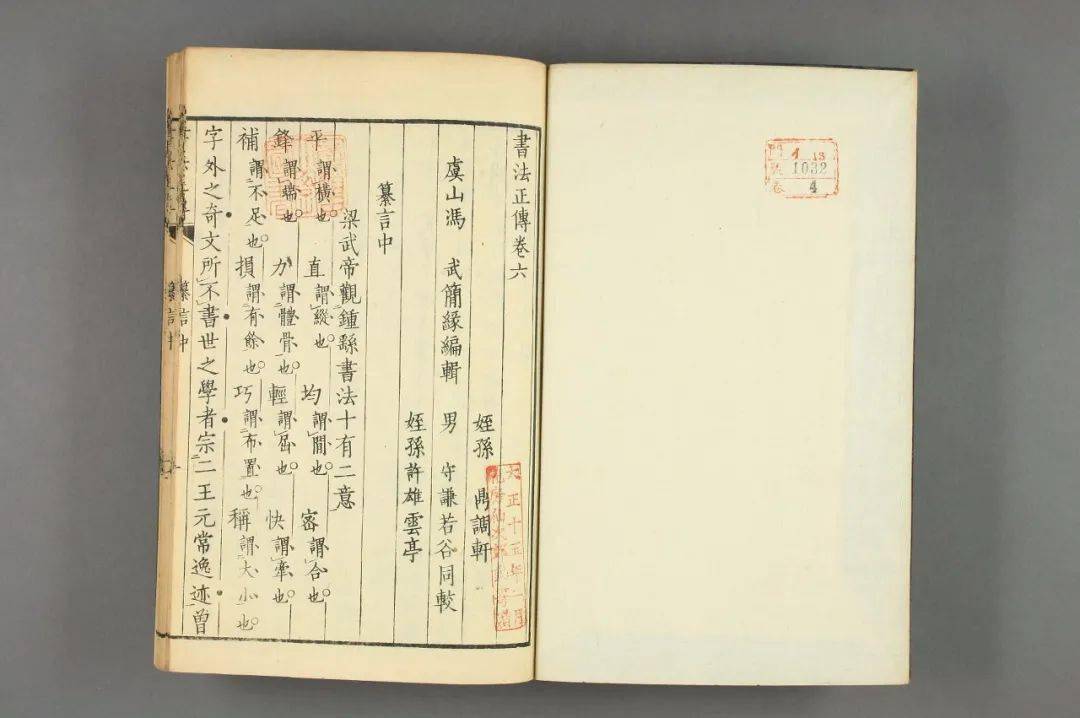 書法正傳卷六
姪孫 鼎調軒
虞山馮 武簡緣編輯 男 守謙若谷同較
姪孫許雄雲亭
纂言中
梁武帝觀鍾繇書法十有二意
平謂橫也 直謂縱也 均謂間也 密謂合也
鋒謂端也 力謂體骨也 輕謂屈也 快謂牽也
補謂不足也 損謂有餘也 巧謂布置也 稱謂大小也
字外之奇文所不書世之學者宗二王元常逸迹曾
纂言中
門 イ 13
號 1032
卷 4
大正十五年一月